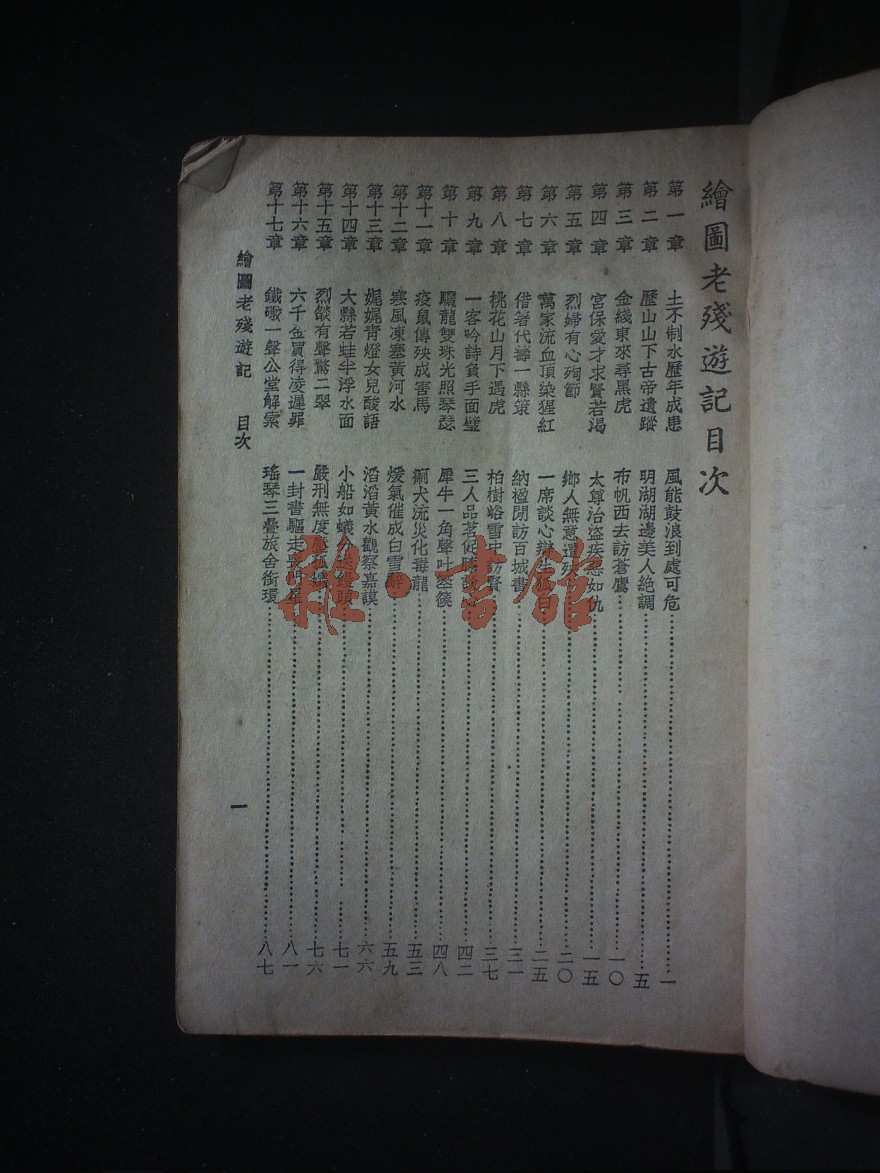 繪圖老殘遊記目次
第一章 土不制水歷年成患 風能鼓浪到處可危 一
第二章 歷山山下古帝遺蹤 明湖湖邊美人絕調 五
第三章 金綫東來尋黑虎 布帆西去訪蒼鷹 一〇
第四章 宮保愛才求賢若渴 太尊治盜疾惡如仇 一五
第五章 烈婦有心殉節 鄉人無意遭殃 二〇
第六章 萬家流血頂染猩紅 一席談心辯生狐白 二五
第七章 借箸代籌一縣策 納楹閒訪百城書 三一
第八章 桃花山月下遇虎 柏樹峪雪中訪賢 三七
第九章 一客吟詩負手面壁 三人品茗促膝談心 四二
第十章 驪龍雙珠光照琴瑟 犀牛一角聲叶箜篌 四八
第十一章 疫鼠傳殃成害馬 瘌犬流災化毒龍 五三
第十二章 寒風凍塞黃河水 煖氣催成白雪辭 五九
第十三章 娓娓青燈女兒酸語 滔滔黃水觀察嘉謨 六六
第十四章 大縣若蛙半浮水面 小船如蟻分送饅頭 七一
第十五章 烈燄有聲驚二翠 嚴刑無度逼孤孀 七六
第十六章 六千金買得凌遲罪 一封書驅走喪門星 八一
第十七章 鐵礮一聲公堂解案 瑤琴三疊旅舍銜環 八七
繪圖老殘遊記 目次 一
雜·書館